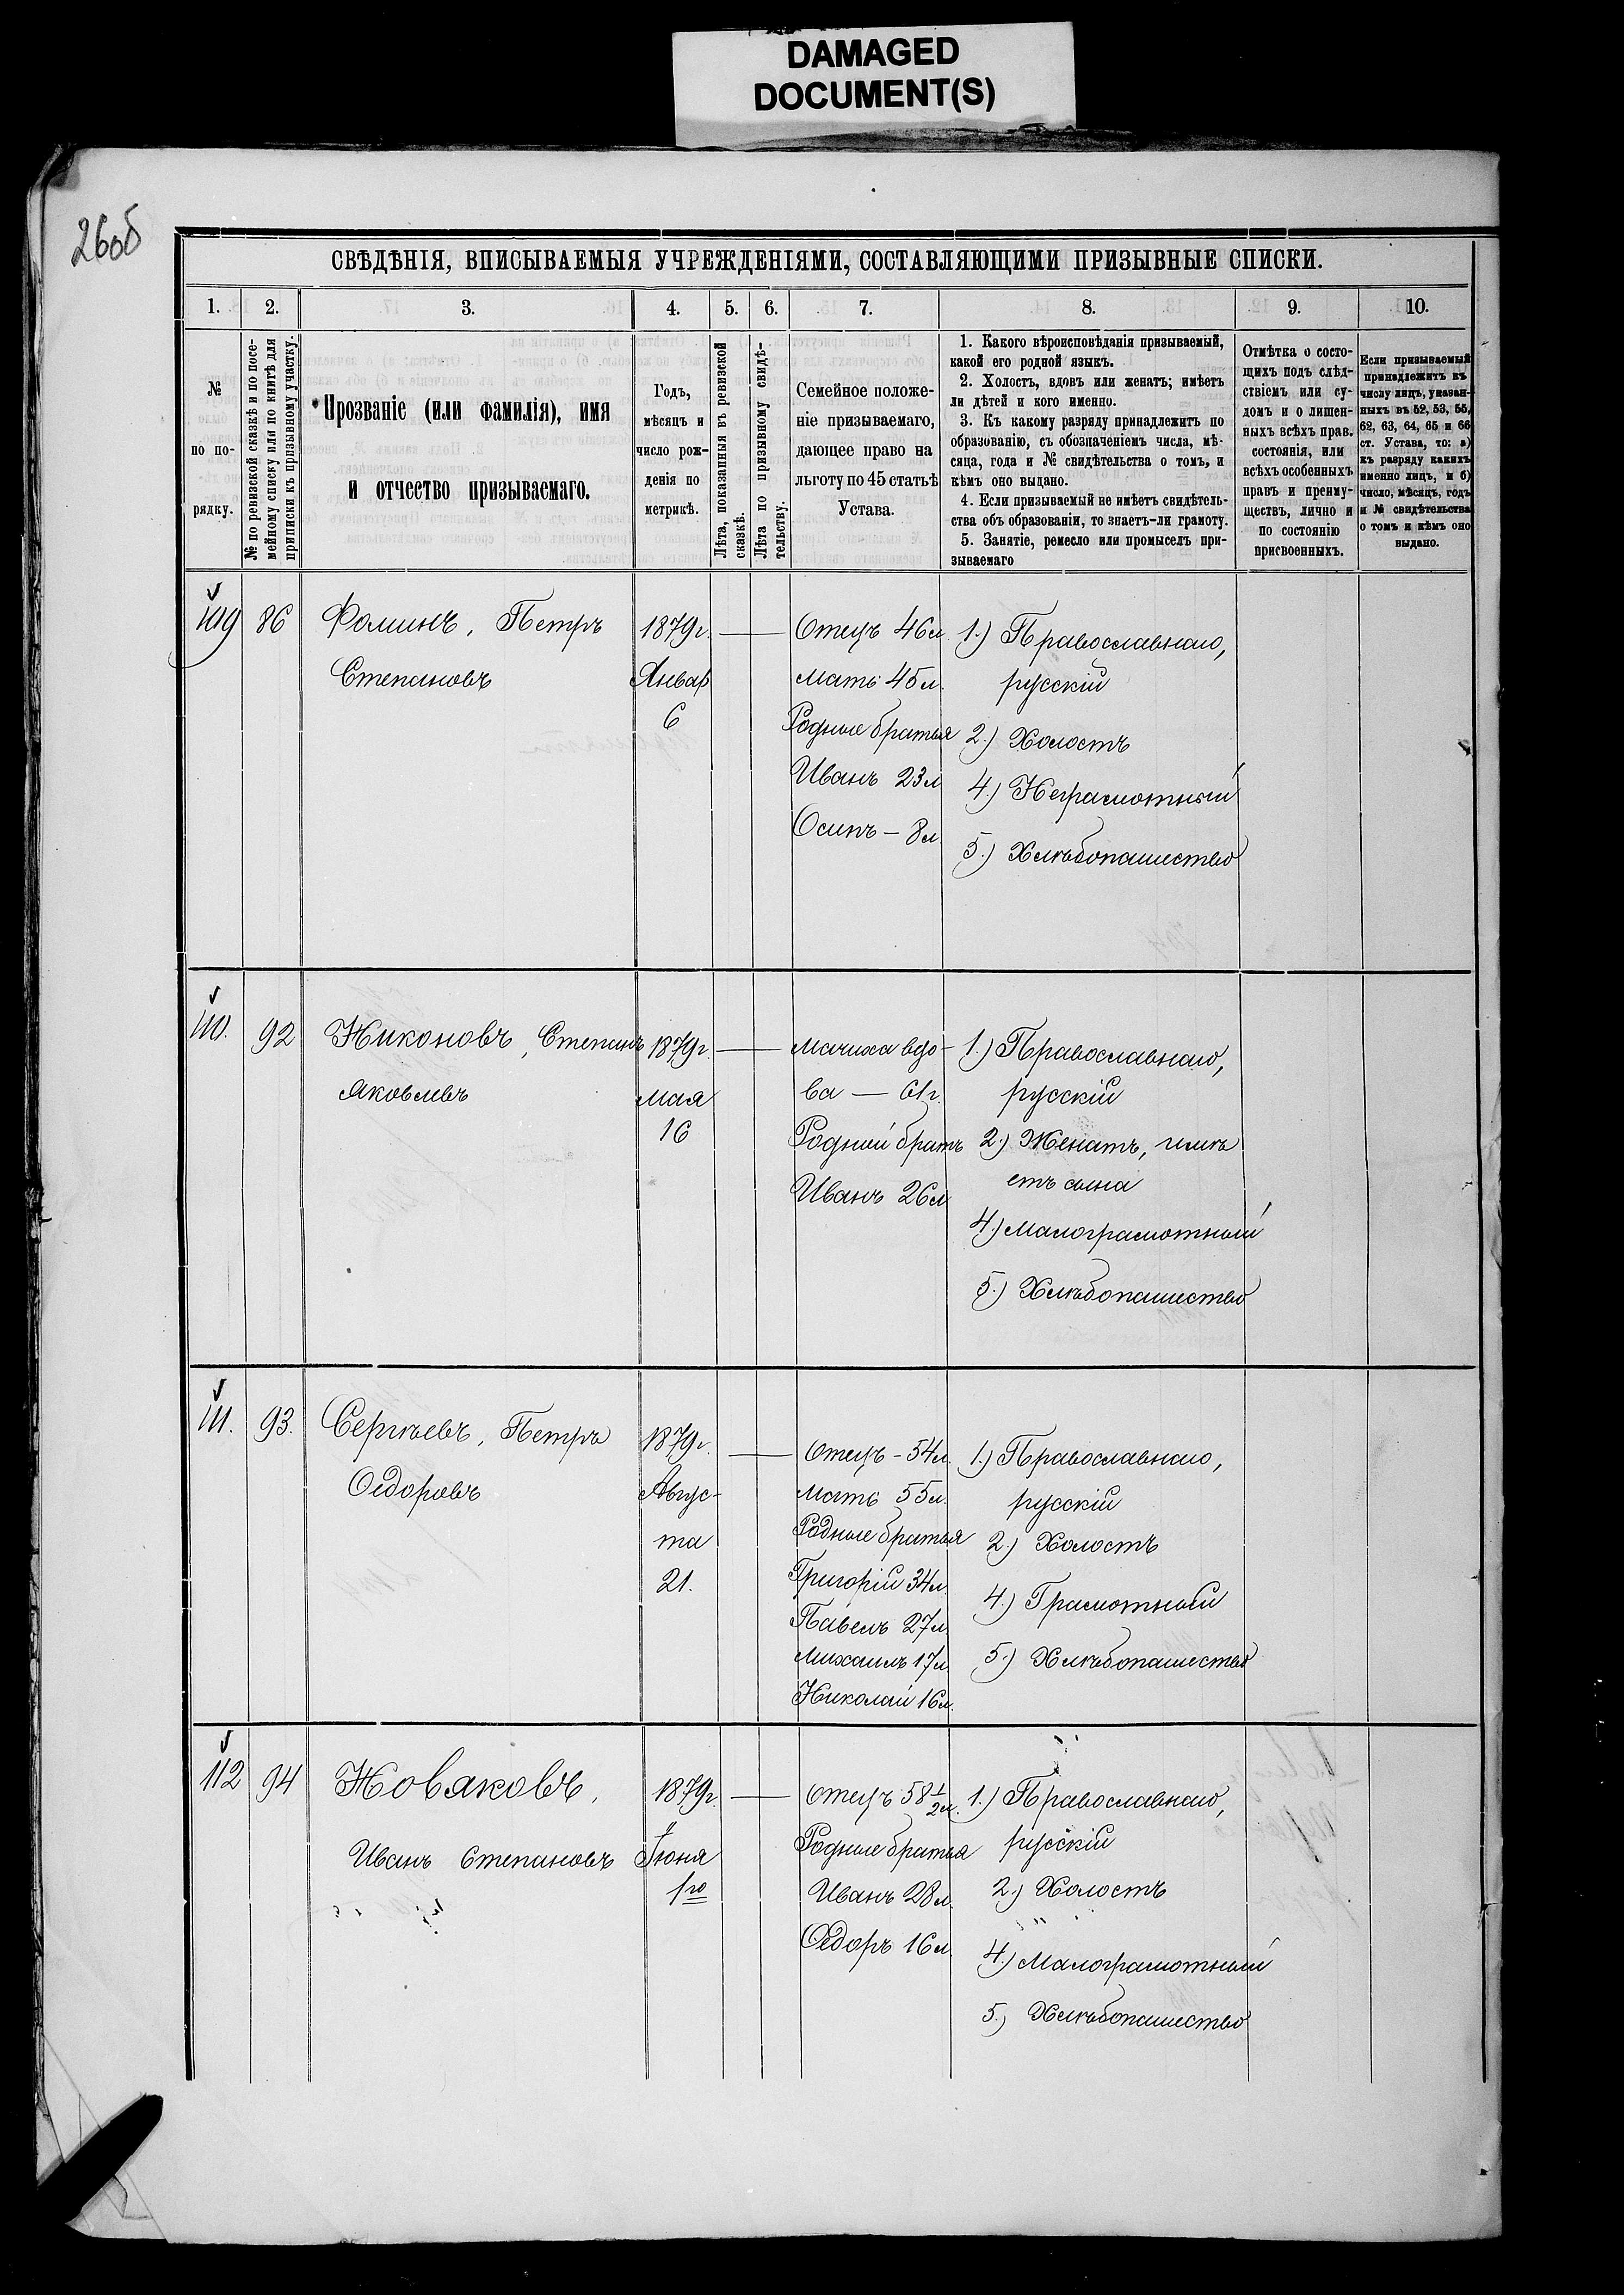 DAMAGED
DOCUMENT(S)
260б
СВѢДѢНІЯ, ВПИСЫВАЕМЫЯ УЧРЕЖДЕНІЯМИ, СОСТАВЛЯЮЩИМИ ПРИЗЫВНЫЕ СПИСКИ.
1. 2. 3. 4. 5. 6. 7. 8. 9. 10.
№
по по-
рядку.
№ по ревизской сказкѣ и по посе-
мейному списку или по книгѣ для
приписки къ призывному участку.
Прозваніе (или фамилія), имя
и отчество призываемаго.
Годъ,
мѣсяцъ и
число рож-
денія по
метрикѣ.
Лѣта, показанныя въ ревизской
сказкѣ.
Лѣта по призывному свидѣ-
тельству.
Семейное положе-
ніе призываемаго,
дающее право на
льготу по 45 статьѣ
Устава.
1. Какого вѣроисповѣданія призываемый,
какой его родной языкъ.
2. Холостъ, вдовъ или женатъ; имѣетъ
ли дѣтей и кого именно.
3. Къ какому разряду принадлежитъ по
образованію, съ обозначеніемъ числа, мѣ-
сяца, года и № свидѣтельства о томъ, и
кѣмъ оно выдано.
4. Если призываемый не имѣетъ свидѣтель-
ства объ образованіи, то знаетъ-ли грамоту.
5. Занятіе, ремесло или промыселъ при-
зываемаго
Отмѣтка о состо-
щихъ подъ слѣд-
ствіемъ или су-
домъ и о лишен-
ныхъ всѣхъ прав.
состоянія, или
всѣхъ особенныхъ
правъ и преиму-
ществъ, лично и
по состоянію
присвоенныхъ.
Если призываемый
принадлежитъ къ
числу лицъ, указан-
ныхъ въ 52, 53, 55,
62, 63, 64, 65 и 66
ст. Устава, то: а)
къ разряду какихъ
именно лицъ, и б)
число, мѣсяцъ, годъ
и № свидѣтельства
о томъ и кѣмъ оно
выдано.
109 86
Фоминъ, Петръ
Степановъ
1879г.
Январ
6
Отецъ 46л.
Мать 45л.
Родные братья
Иванъ 23л
Осипъ – 8л
1.) Православнаго,
русскій
2.) Холостъ
4.) Неграмотный
5.) Хлѣбопашество
110. 92
Никоновъ, Степанъ
Яковлевъ
1879г.
мая
16
Мачиха вдо-
ва — 61г.
Родной братъ
Иванъ 26л
1.) Православнаго,
русскій
2.) Женатъ, имѣ
етъ сына
4.) Малограмотный
5.) Хлѣбопашество
111. 93.
Сергѣевъ, Петръ
Ѳедоровъ
1879г.
Авгус-
та
21.
Отецъ – 54л.
Мать 55л.
Родные братья
Григорій 34л.
Павелъ 27л.
Михаилъ 17л
Николай 16л.
1.) Православнаго,
русскій
2.) Холостъ
4.) Грамотный
5.) Хлѣбопашество
112 94
Новаковъ,
Иванъ Степановъ
1879г.
Іюня
1го
Отецъ 58 1/2л.
Родные братья
Иванъ 28л.
Ѳедоръ 16л.
1.) Православнаго,
русскій
2.) Холостъ
4.) Малограмотный
5.) Хлѣбопашество